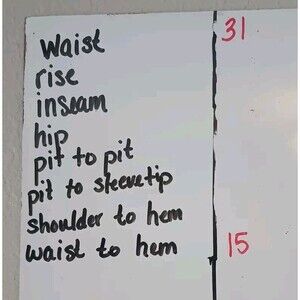 Waist 31
rise
inseam
hip
pit to pit
pit to sleevetip
shoulder to hem
waist to hem 15